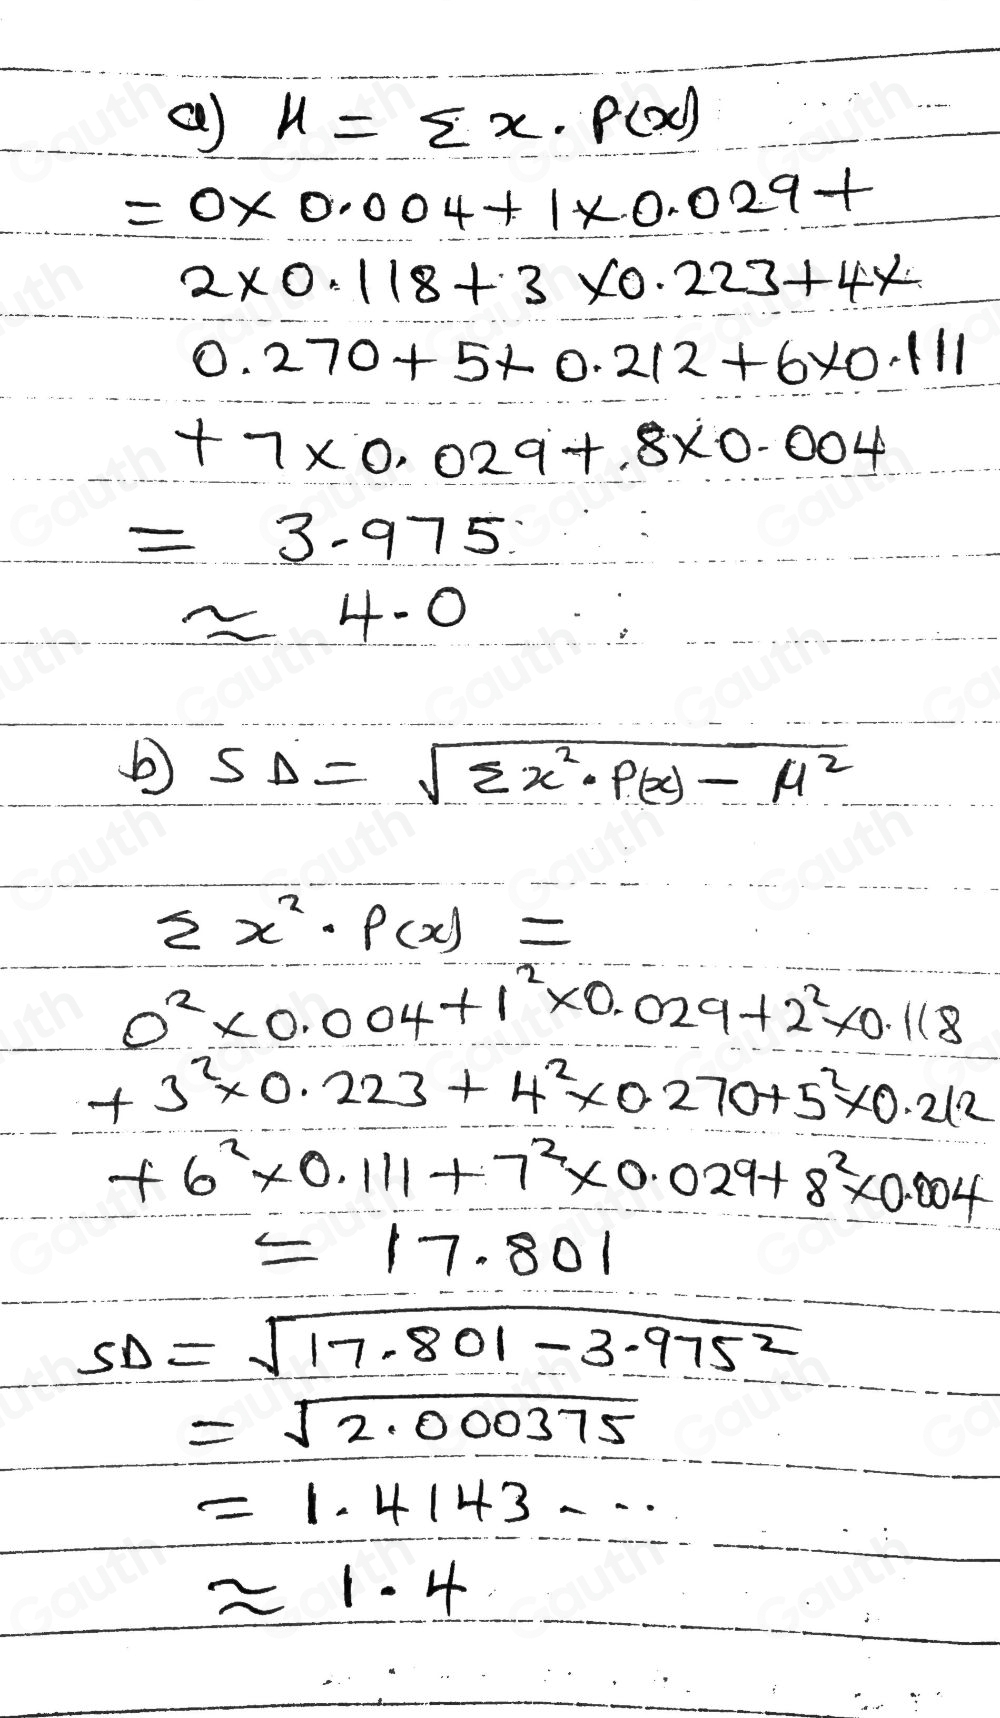 a) μ = Σ x . P(x)
= 0 × 0.004 + 1 × 0.029 +
2 × 0.118 + 3 × 0.223 + 4 ×
0.270 + 5 × 0.212 + 6 × 0.111
+ 7 × 0.029 + 8 × 0.004
= 3.975
≈ 4.0
b) SD = √(Σx² . P(x) − μ²)
Σ x² . P(x) =
0² × 0.004 + 1² × 0.029 + 2² × 0.118
+ 3² × 0.223 + 4² × 0.270 + 5² × 0.212
+ 6² × 0.111 + 7² × 0.029 + 8² × 0.004
= 17.801
SD = √(17.801 − 3.975²)
= √2.000375
= 1.4143...
≈ 1.4